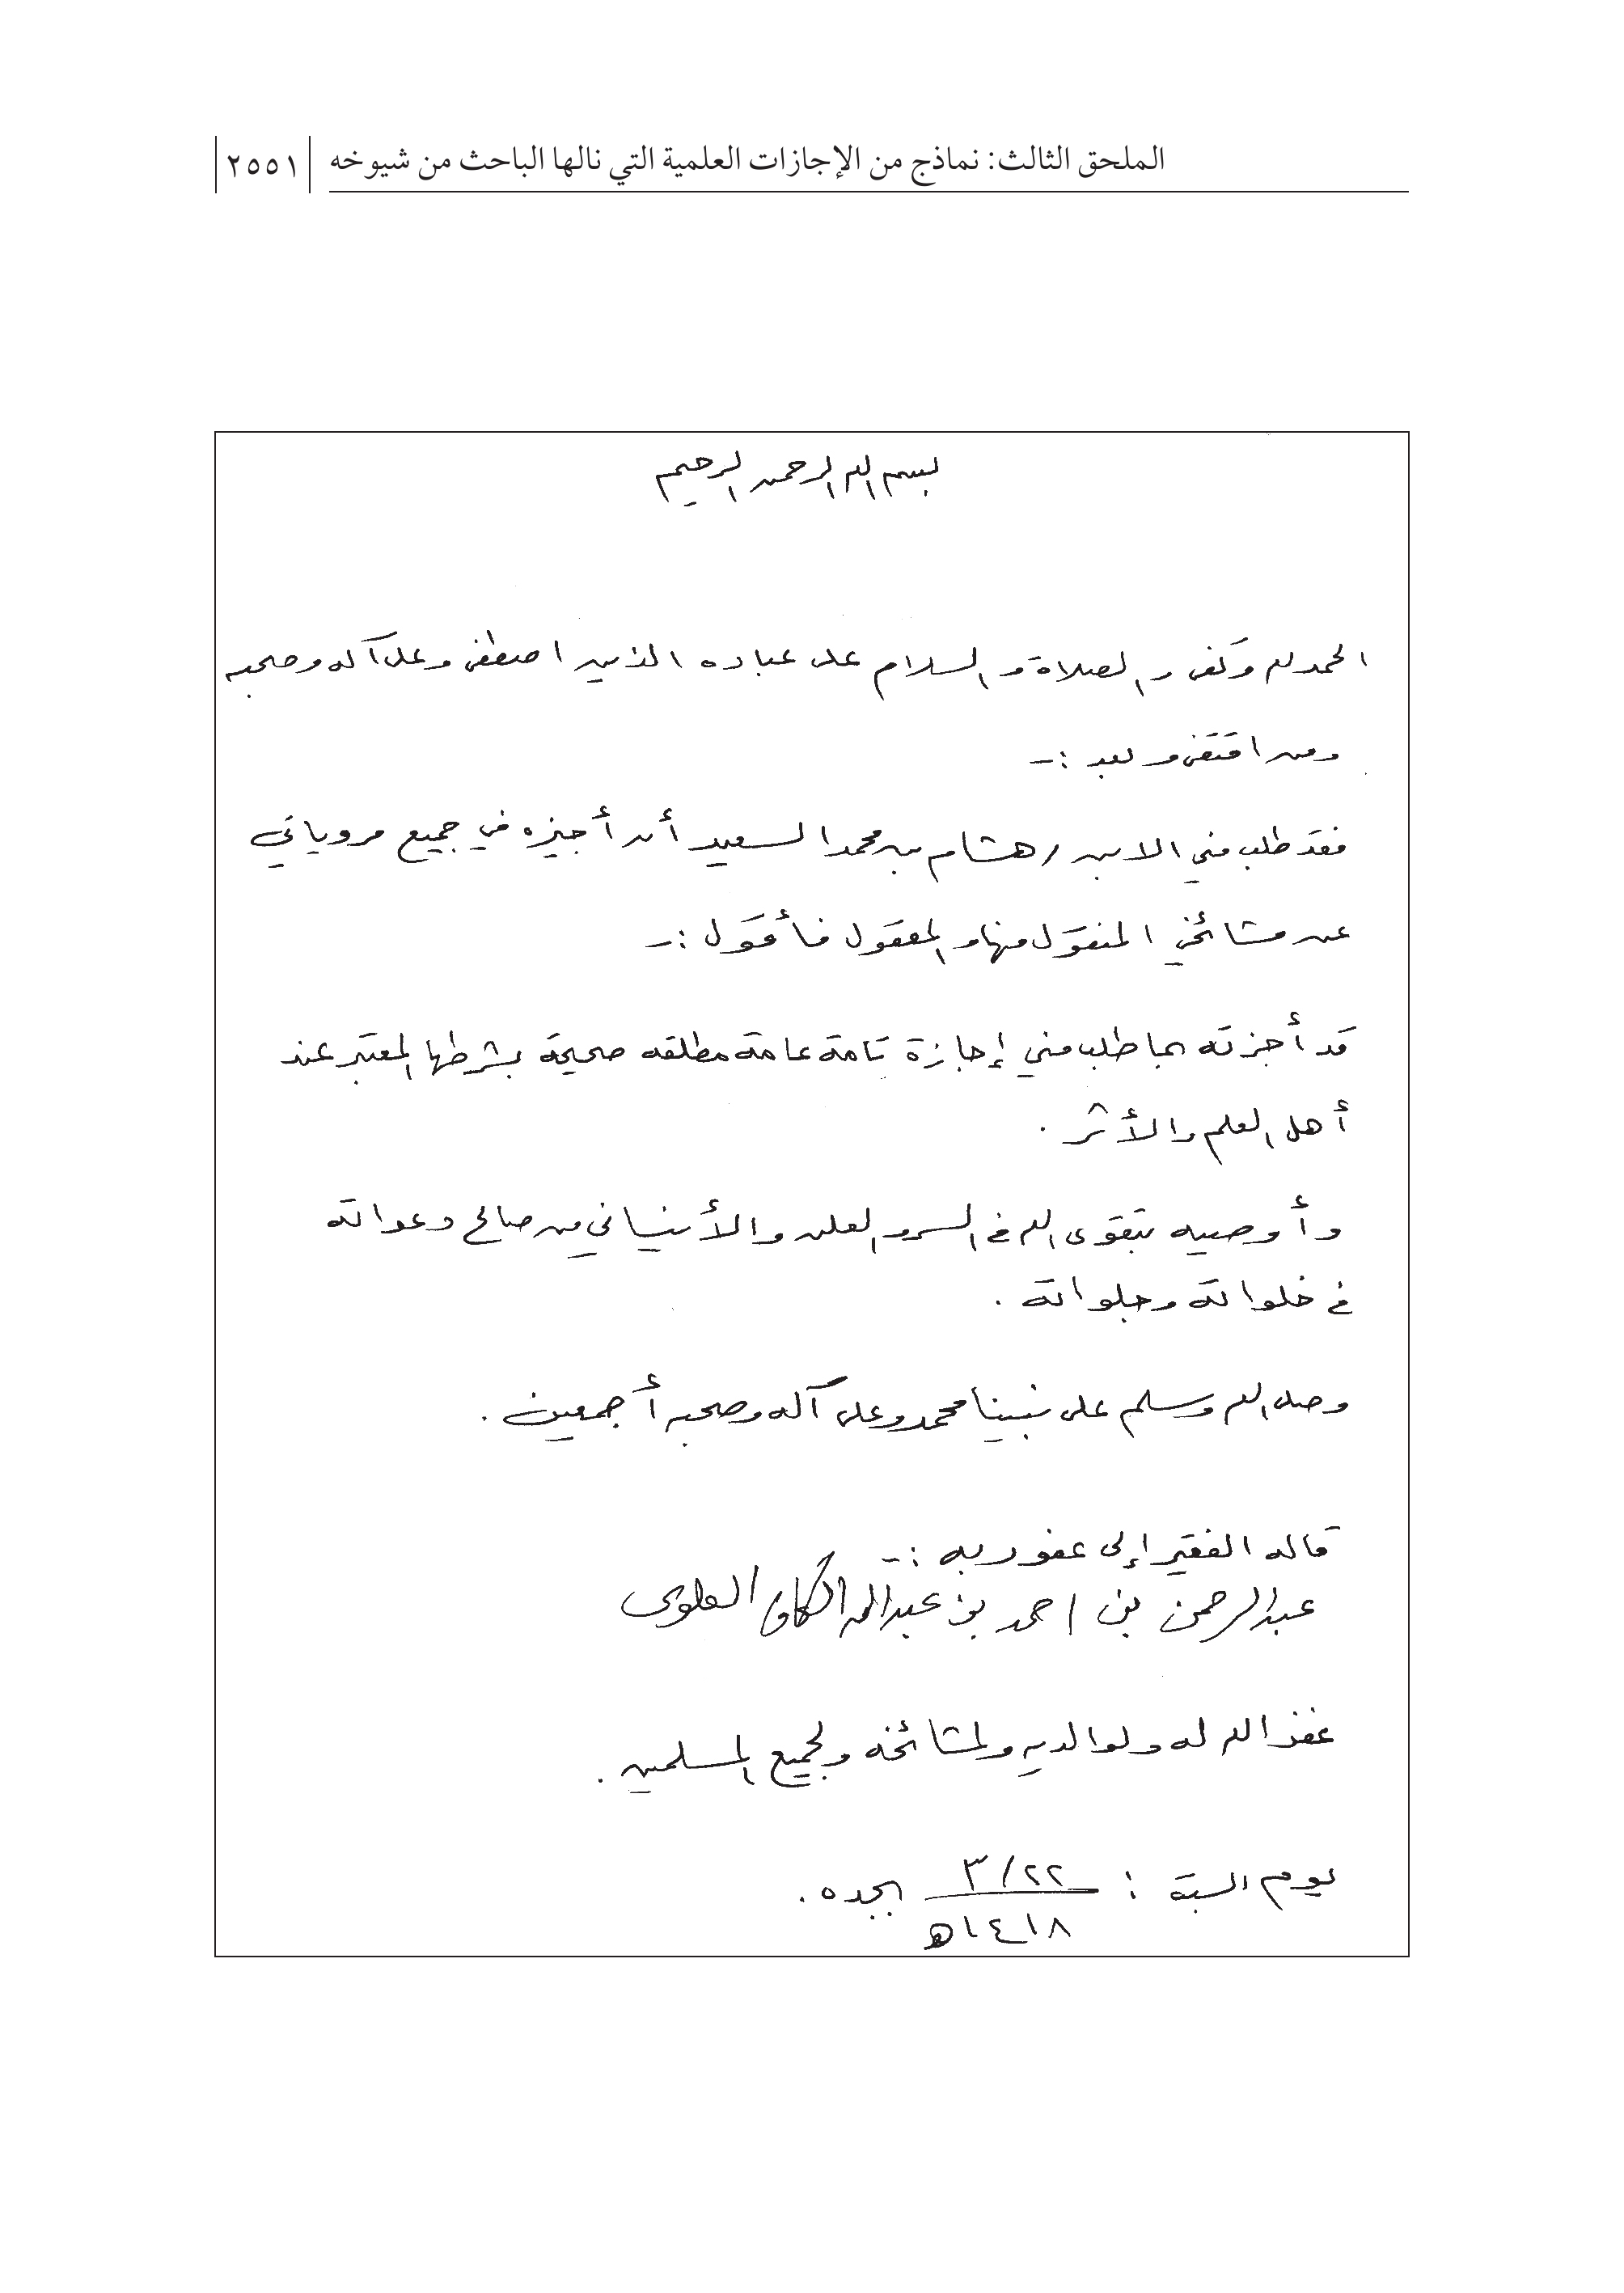 الملحق الثالث: نماذج من الإجازات العلمية التي نالها الباحث من شيوخه ٢٥٥١
بسم الله الرحمن الرحيم
الحمد لله وكفى والصلاة والسلام على عباده الذين اصطفى وعلى آله وصحبه
ومن اقتفى وبعد :-
فقد طلب مني الابن / هشام بن محمد السعيد أن أجيزه في جميع مروياتي
عن مشائخي المنقول منها والمعقول فأقول :-
قد أجزته بما طلب مني إجازة تامة عامة مطلقه صحيحة بشرطها المعتبر عند
أهل العلم والأثر .
وأوصيه بتقوى الله في السر والعلن والأ ينساني من صالح دعواته
في خلواته وجلواته .
وصلى الله وسلم على نبينا محمد وعلى آله وصحبه أجمعين .
قاله الفقير إلى عفو ربه :-
عبدالرحمن بن احمد بن عبدالله الكاف العلوي
غفر الله له ولوالديه ولمشائخه ولجميع المسلمين .
يوم السبت : ٢٢/٣ بجده .
١٤١٨ه